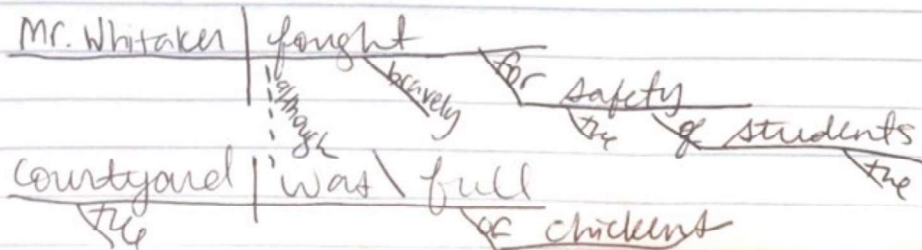 Mr. Whitaker fought
although bravely for safety
the of students
the
courtyard was full
the of chickens